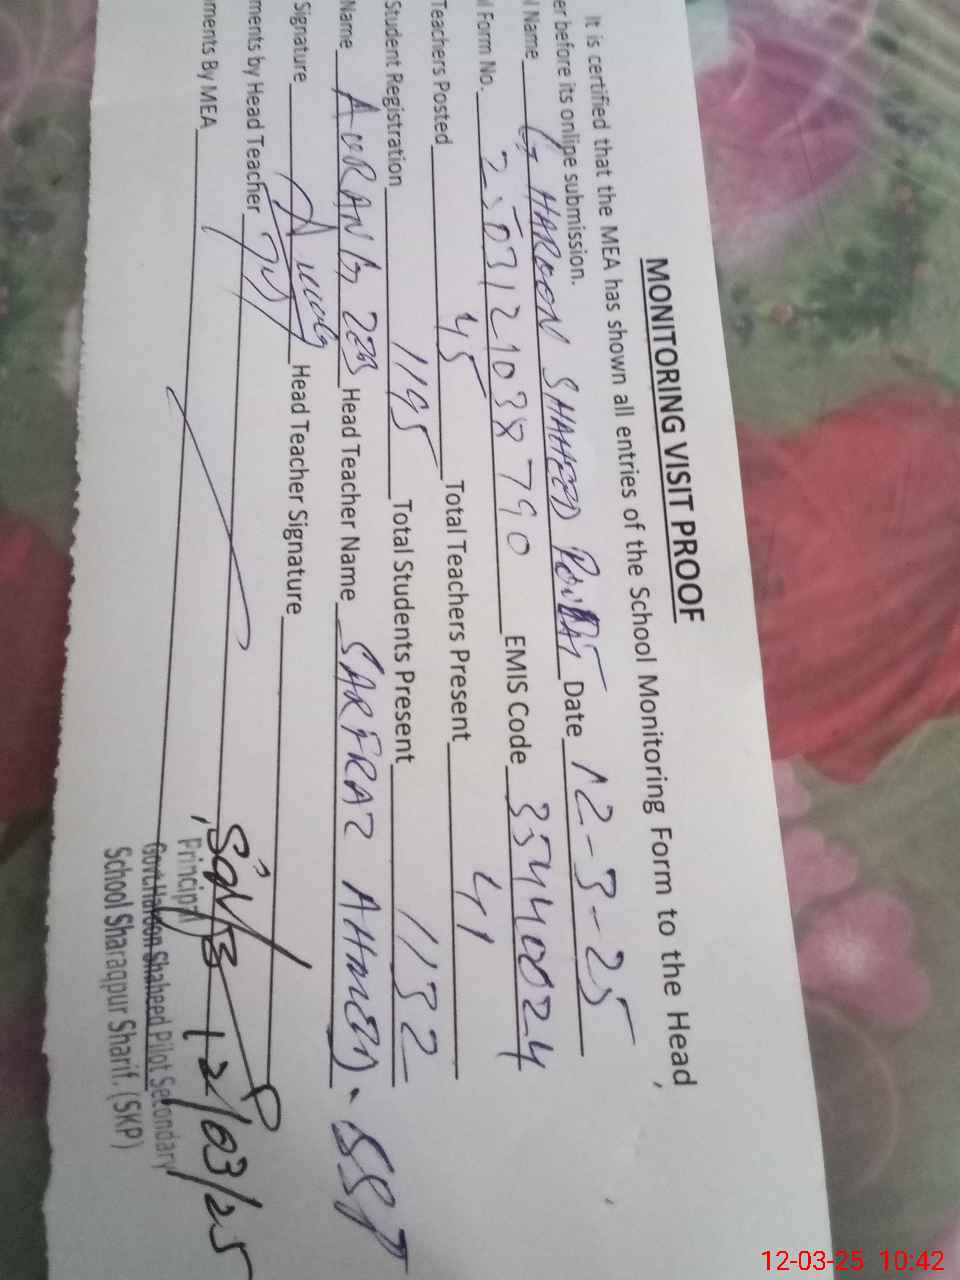 MONITORING VISIT PROOF
It is certified that the MEA has shown all entries of the School Monitoring Form to the Head
er before its online submission.
l Name G HAROON SHAHEED PILOT Date 12-3-25
l Form No. 2503121038790 EMIS Code 35440024
Teachers Posted 45 Total Teachers Present 41
Student Registration 1195 Total Students Present 1132
Name AURANG ZEB Head Teacher Name SARFRAZ AHMED. SST
Signature Head Teacher Signature
ments by Head Teacher
ments By MEA 12/03/25
Principal
Govt.Haroon Shaheed Pilot Secondary
School Sharaqpur Sharif. (SKP)
12-03-25 10:42